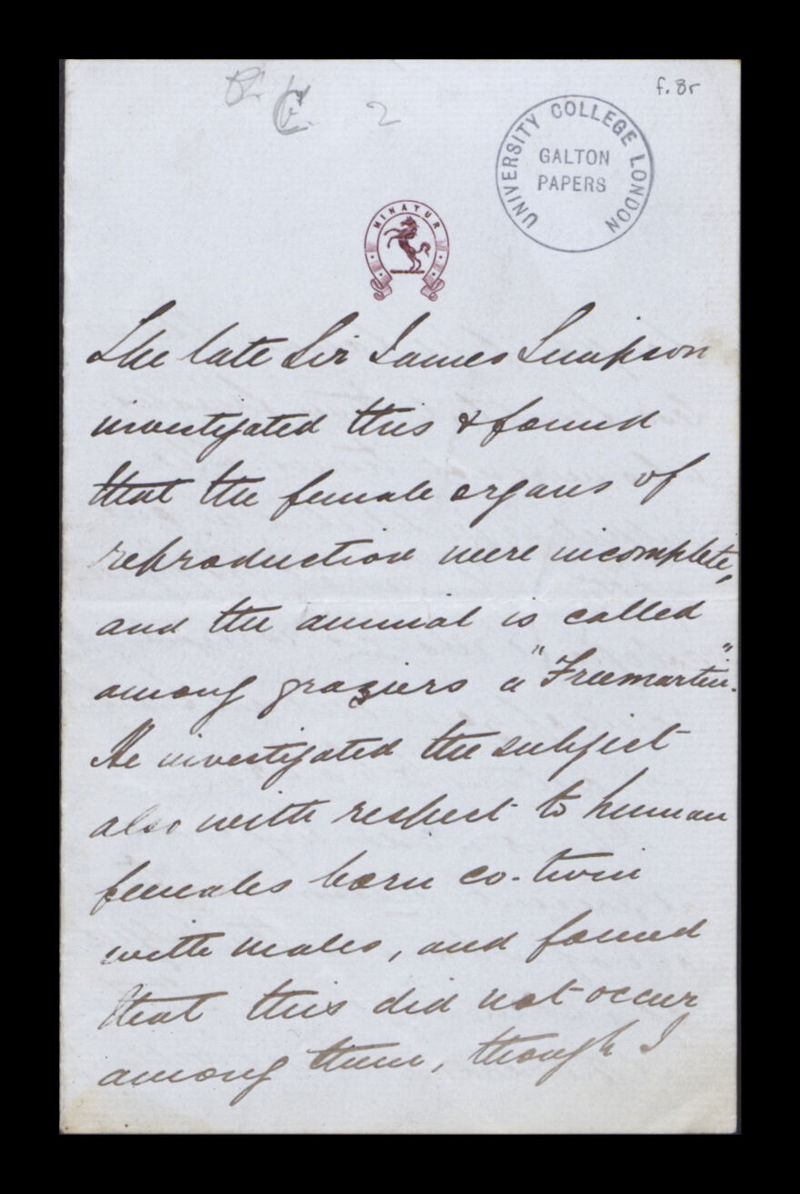 f. 8r
2
UNIVERSITY COLLEGE LONDON
GALTON
PAPERS
MINATUR
The late Sir James Simpson
investigated this & found
that the female organs of
reproduction were incomplete,
and the animal is called
among graziers a "Freemartin".
He investigated the subject
also with respect to human
females born co-twin
with males, and found
that this did not occur
among them, though I